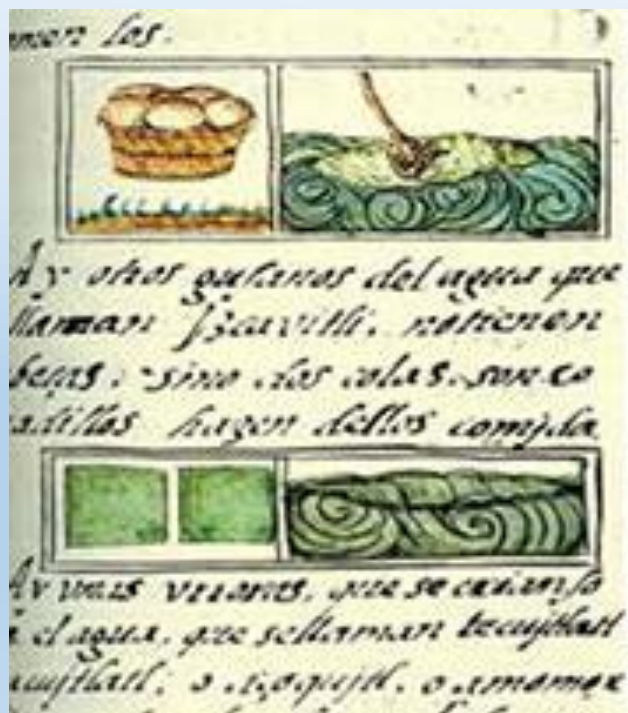 men los.
Ay otros gusanos del agua que
llaman Izcavitli. notienen
beças, sino dos colas. son co
adillos hazen dellos comjda
Ay unas urronas, que secrian so
el agua, que sellaman tecujtlatl
acujtlatl; o amomox